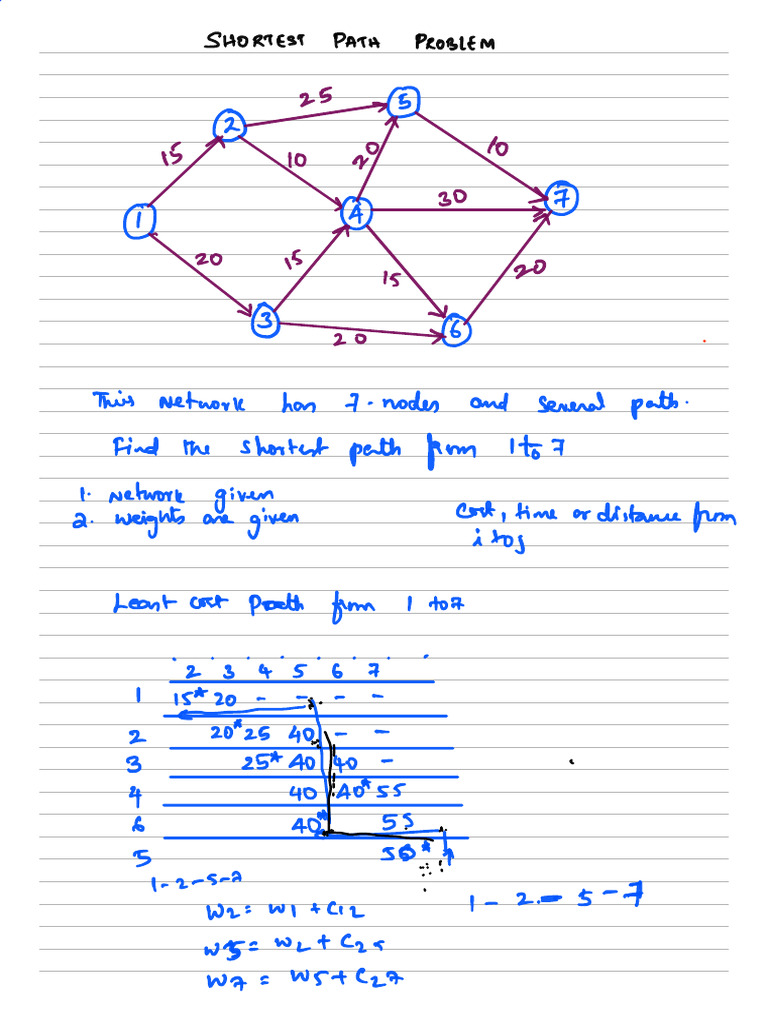 SHORTEST PATH PROBLEM
25
5
2
15
10
20
10
1
4
30
7
20
15
15
20
3
20
6
This Network has 7 nodes and several path.
Find the shortest path from 1 to 7
1. Network given
2. Weights are given
Cost, time or distance from
i to j
Least cost Path from 1 to 7
2 3 4 5 6 7
1 15* 20 - - - -
2 20* 25 40 - -
3 25* 40 40 -
4 40 40* 55
6 40* 55
5 50*
1-2-5-7
1-2-5-7
W2 = W1 + C12
W5 = W2 + C25
W7 = W5 + C27